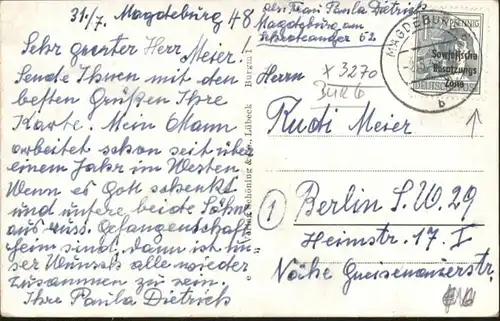 31./7. Magdeburg 48
Sehr geerter Herr Meier.
Sende Ihnen mit den
besten Grüßen Ihre
Karte. Mein Mann
arbeitet schon seit über
einem Jahr im Westen
Wenn es Gott schenkt
und unsere beide Söhne
aus russ. Gefangenschaft
heim sind, dann ist un-
ser Wunsch alle wieder
zusammen zu sein.
Ihre Paula Dietrich
Abs. Frau Paula Dietrich
Magdeburg am
62
Schöning & Co., Lübeck
MAGDEBURG
b
PFENNIG
Sowjetische
Besatzungs
Zone
DEUTSCHE
Herrn
x 3270
Rudi Meier
1
Berlin S.W. 29
Heimstr. 17. I
Nähe Gneisenauerstr.